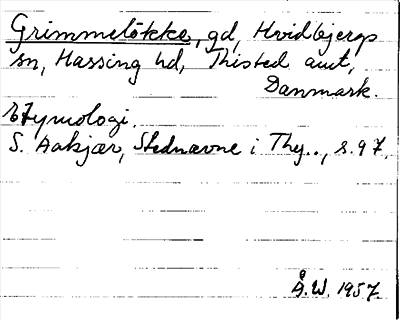 Grimmeløkke, gd, Hvidbjergs
sn, Hassing hd, Thisted amt,
Danmark.
Etymologi.
S. Aakjær, Stednavne i Thy.., s. 97.
Å.W. 1957.